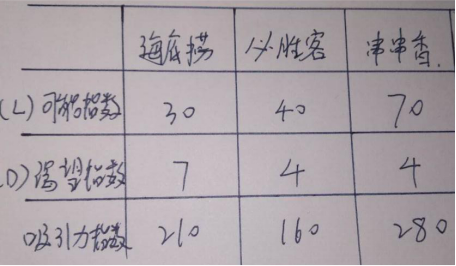 海底捞 必胜客 串串香.
(L) 可能指数 30 40 70
(D) 渴望指数 7 4 4
吸引力指数 210 160 280